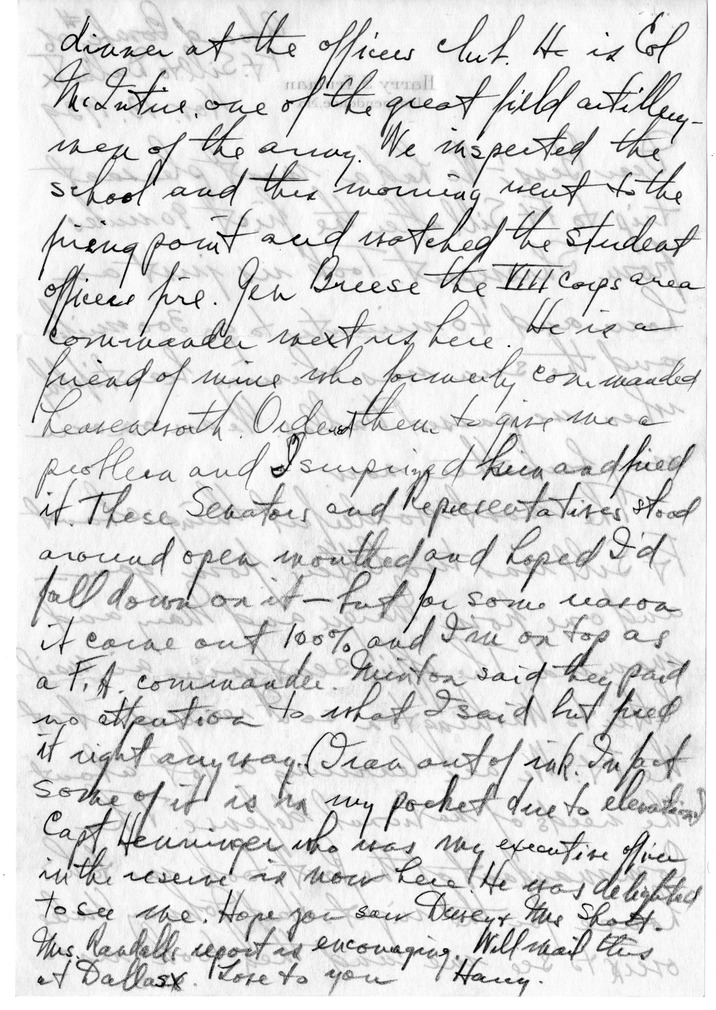 dinner at the officers club. He is Col
McIntire, one of the great field artillery-
men of the army. We inspected the
school and this morning went to the
firing point and watched the student
officers fire. Gen Breese the VIII corps area
commander met us here. He is a
friend of mine who formerly commanded
Leavenworth. Ordered them to give me a
problem and I surprized him and fired
it. These Senators and representatives stood
around open mouthed and hoped I'd
fall down on it – but for some reason
it came out 100% and I'm on top as
a F.A. commander. Minton said they paid
no attention to what I said but fired
it right anyway. (I ran out of ink. In fact
some of it is in my pocket due to elevation)
Capt Henninger who was my executive officer
in the reserve is now here. He was delighted
to see me. Hope you saw & Mrs
Mrs. Randall's report is encouraging. Will mail this
at Dallas. Love to you Harry.